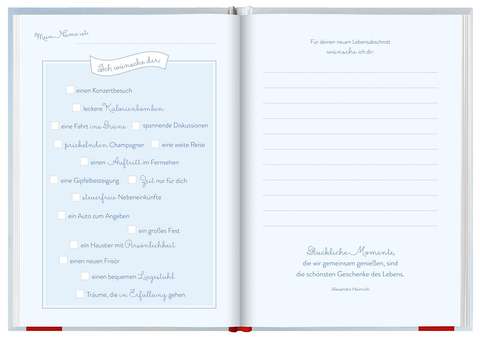 Mein Name ist:
Ich wünsche dir:
einen Konzertbesuch
leckere Kalorienbomben
eine Fahrt ins Grüne
spannende Diskussionen
prickelnden Champagner
eine weite Reise
einen Auftritt im Fernsehen
eine Gipfelbesteigung
Zeit nur für dich
steuerfreie Nebeneinkünfte
ein Auto zum Angeben
ein großes Fest
ein Haustier mit Persönlichkeit
einen neuen Frisör
einen bequemen Liegestuhl
Träume, die in Erfüllung gehen
Für deinen neuen Lebensabschnitt
wünsche ich dir:
Glückliche Momente,
die wir gemeinsam genießen, sind
die schönsten Geschenke des Lebens.